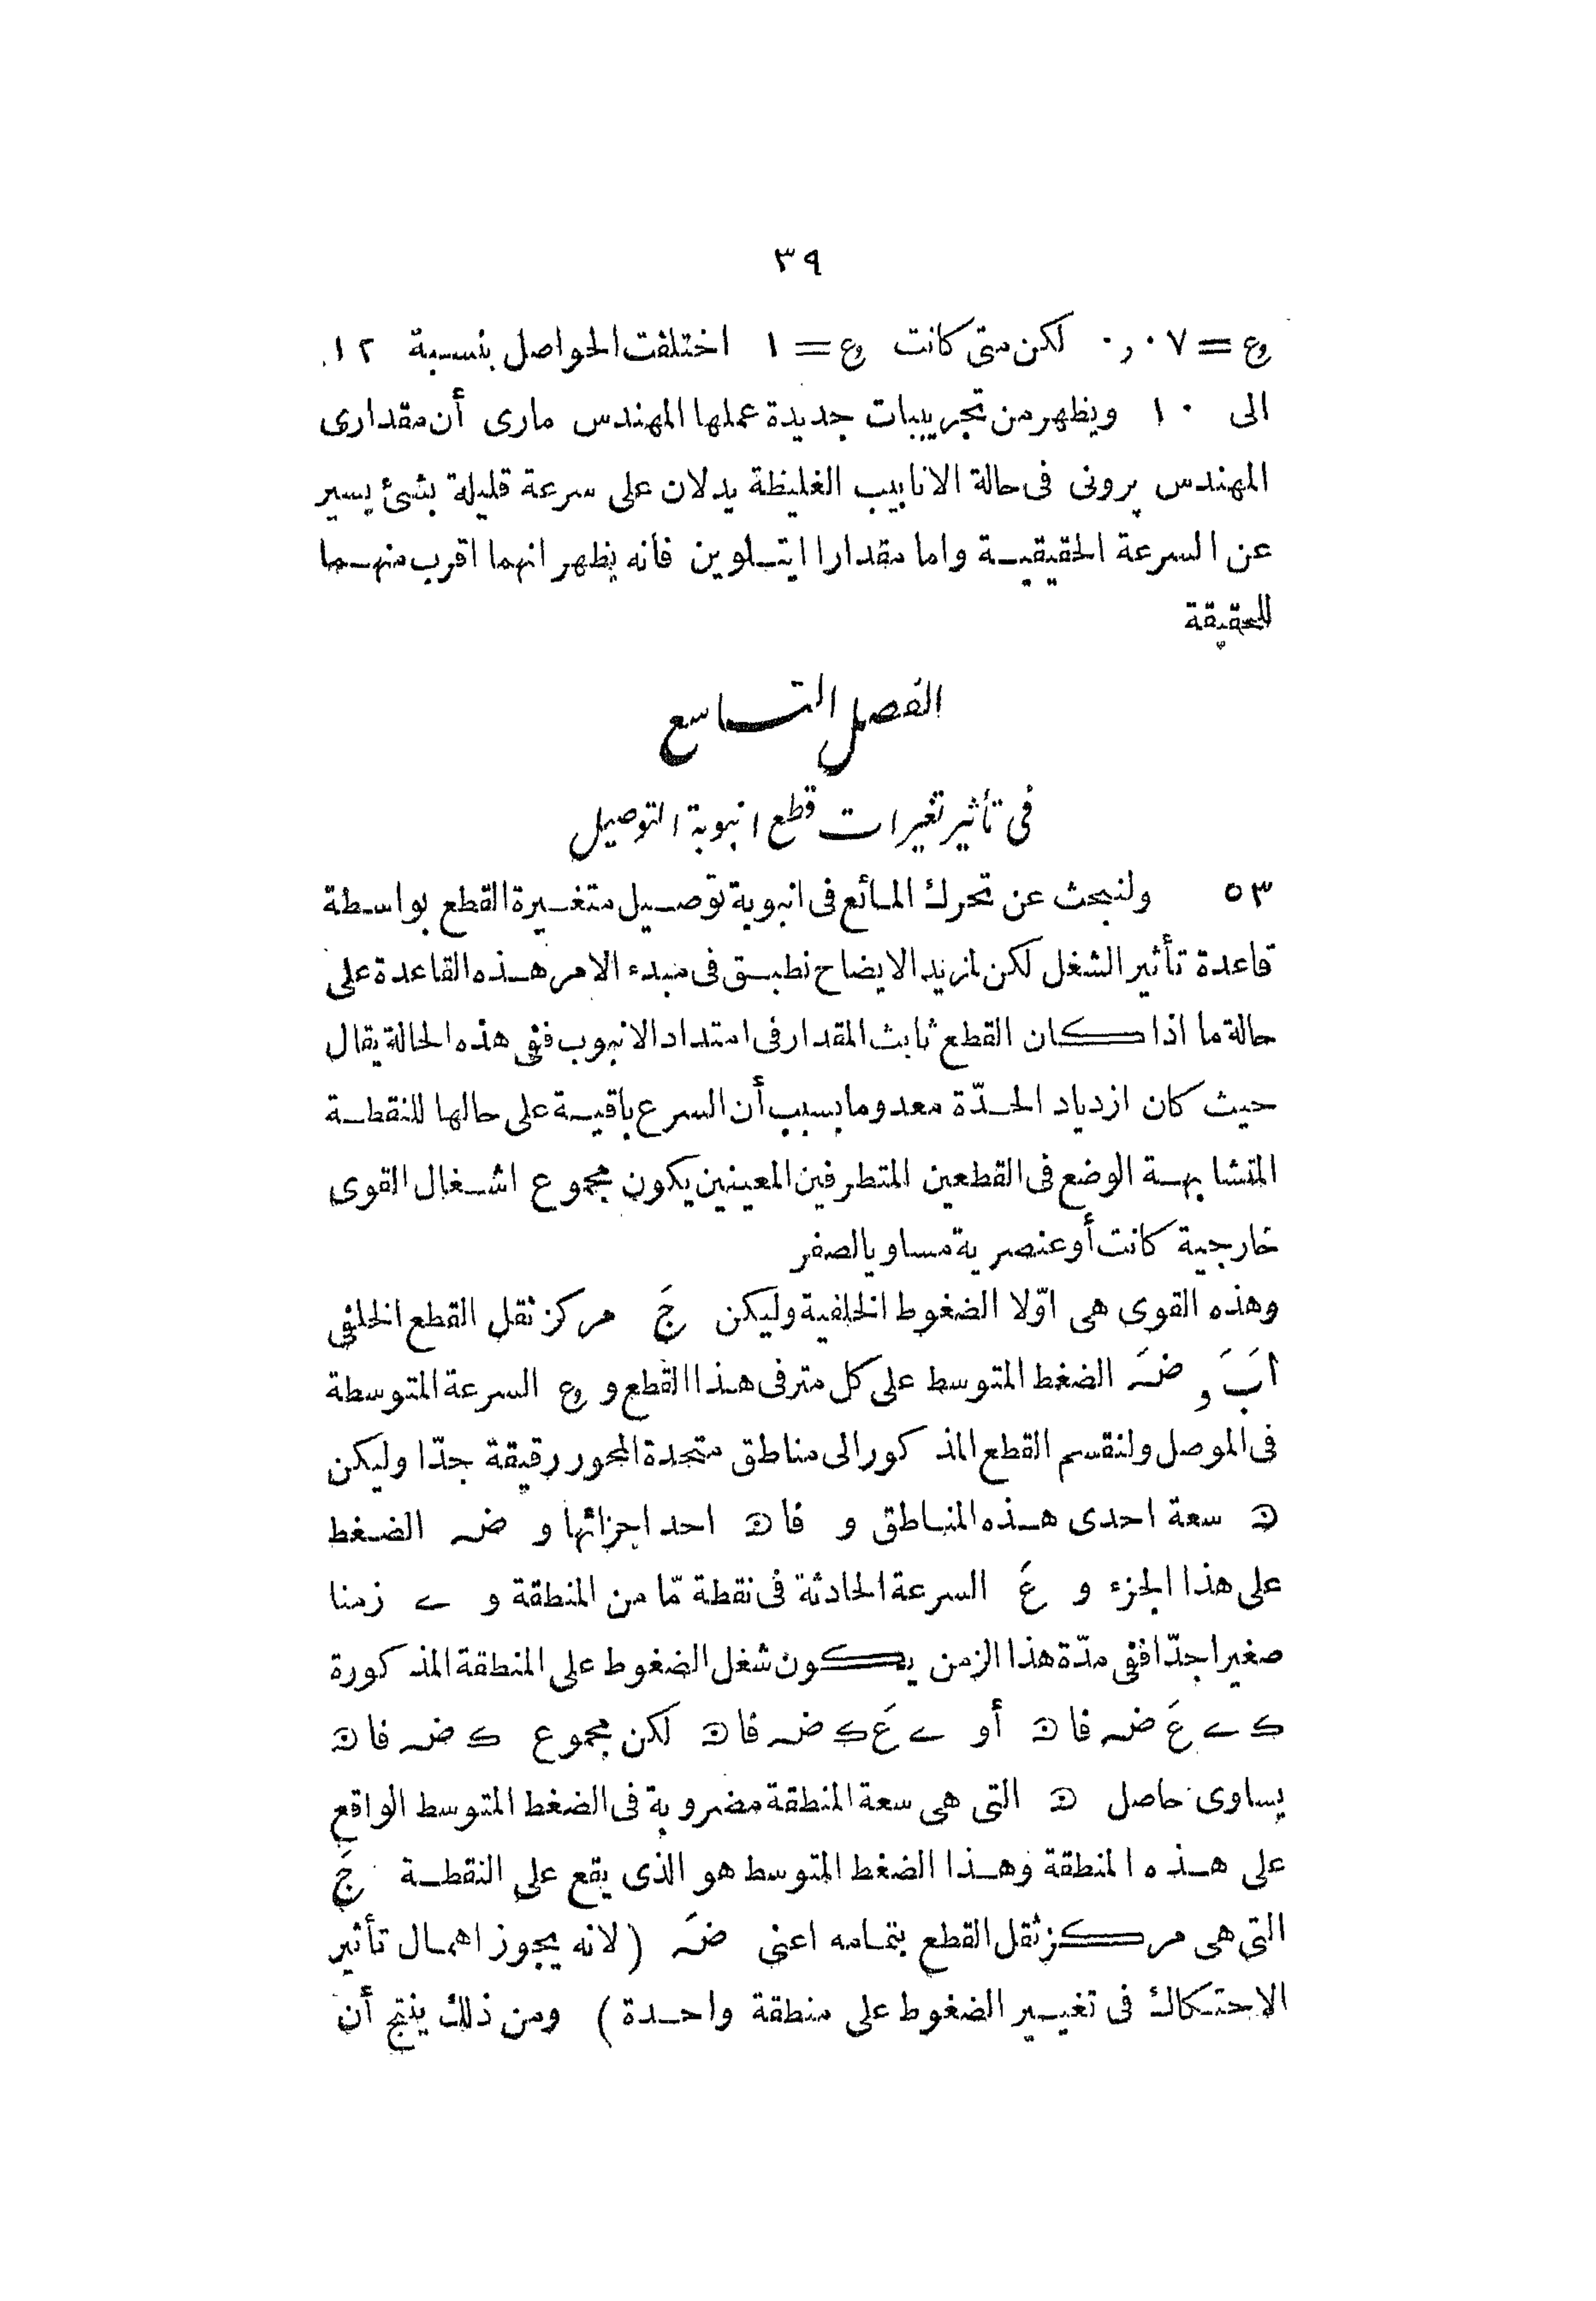 ٣٩
ع = ٠٫٠٧ لكن متى كانت ع = ١ اختلفت الحواصل بنسبة ١٢
الى ١٠ ويظهر من تجريبات جديدة عملها المهندس مارى أن مقدارى
المهندس پرونى فى حالة الانابيب الغليظة يدلان على سرعة قليلة بشئ يسير
عن السرعة الحقيقية واما مقدارا ايتلوين فانه يظهر انهما اقرب منهما
للحقيقة
الفصل التاسع
فى تأثير تغيرات قطع انبوبة التوصيل
٥٣ ولنبحث عن تحرك المائع فى انبوبة توصيل متغيرة القطع بواسطة
قاعدة تأثير الشغل لكن لمزيد الايضاح نطبق فى مبدء الامر هذه القاعدة على
حالة ما اذا كان القطع ثابث المقدار فى امتداد الانبوب ففى هذه الحالة يقال
حيث كان ازدياد الحدّة معدوما بسبب أن السرع باقية على حالها للنقطة
المتشابهة الوضع فى القطعين المتطرفين المعينين يكون مجموع اشغال القوى
خارجية كانت أو عنصرية مساويا لصفر
وهذه القوى هى اوّلا الضغوط الخلفية وليكن جَ مركز ثقل القطع الخلفى
اَبَ و ضَه الضغط المتوسط على كل متر فى هذا القطع و ع السرعة المتوسطة
فى الموصل ولنقسم القطع المذكور الى مناطق متحدة المحور رقيقة جدّا وليكن
ں سعة احدى هذه المناطق و فاں احد اجزائها و ضه الضغط
على هذا الجزء و عَ السرعة الحادثة فى نقطة مّا من المنطقة و ے زمنا
صغيرا جدّا ففى مدّة هذا الزمن يكون شغل الضغوط على المنطقة المذكورة
ک ے عَ ضه فاں أو ے عَ ک ضه فاں لكن مجموع ک ضه فاں
يساوى حاصل ں التى هى سعة المنطقة مضروبة فى الضغط المتوسط الواقع
على هذه المنطقة وهذا الضغط المتوسط هو الذى يقع على النقطة جَ
التى هى مركز ثقل القطع بتمامه اعنى ضَه (لانه يجوز اهمال تأثير
الاحتكاك فى تغيير الضغوط على منطقة واحدة) ومن ذلك ينتج أن